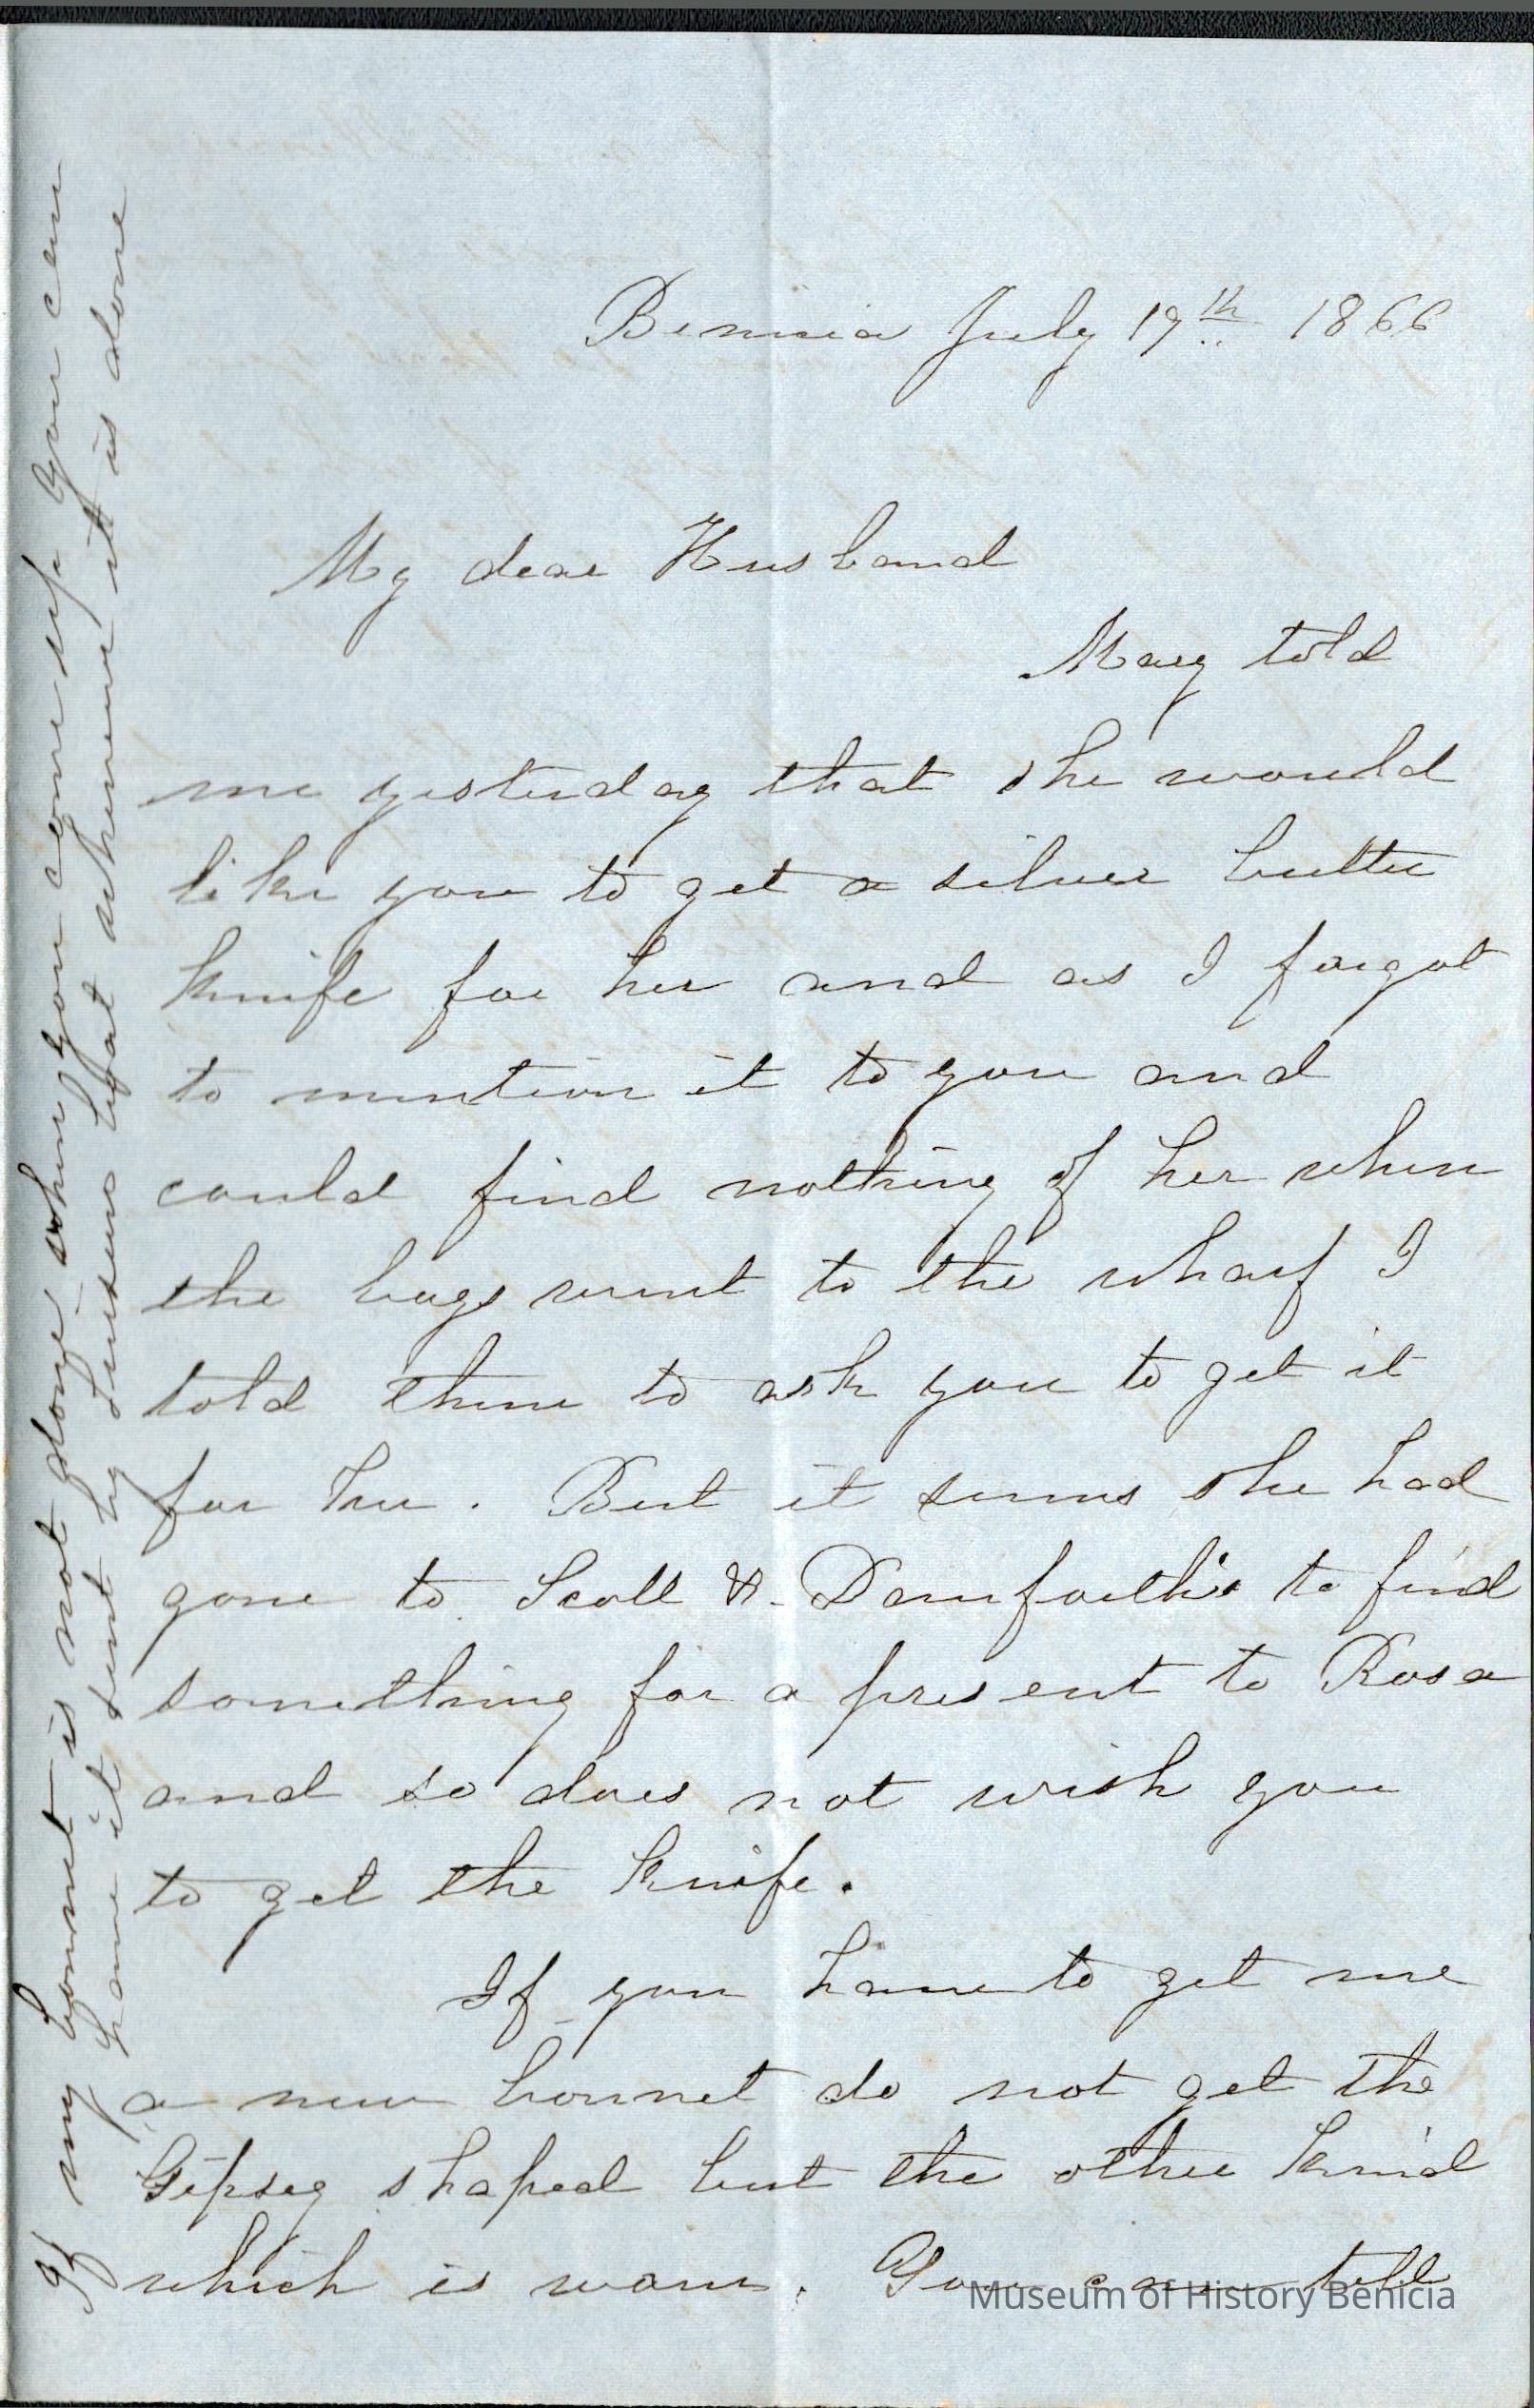 Benicia July 19th 1866
My dear Husband
Mary told
me yesterday that she would
like you to get a silver butter
knife for her and as I forgot
to mention it to you and
could find nothing of her when
the boys went to the wharf I
told them to ask you to get it
for her. But it seems she had
gone to Scott & Danforth's to find
something for a present to Rosa
and so does not wish you
to get the knife.
If you have to get me
a new bonnet do not get the
Gipsey shaped but the other kind
which is worn. You can tell
If my bonnet is not done when you come up you can
have it sent by boat whenever it is done
Museum of History Benicia